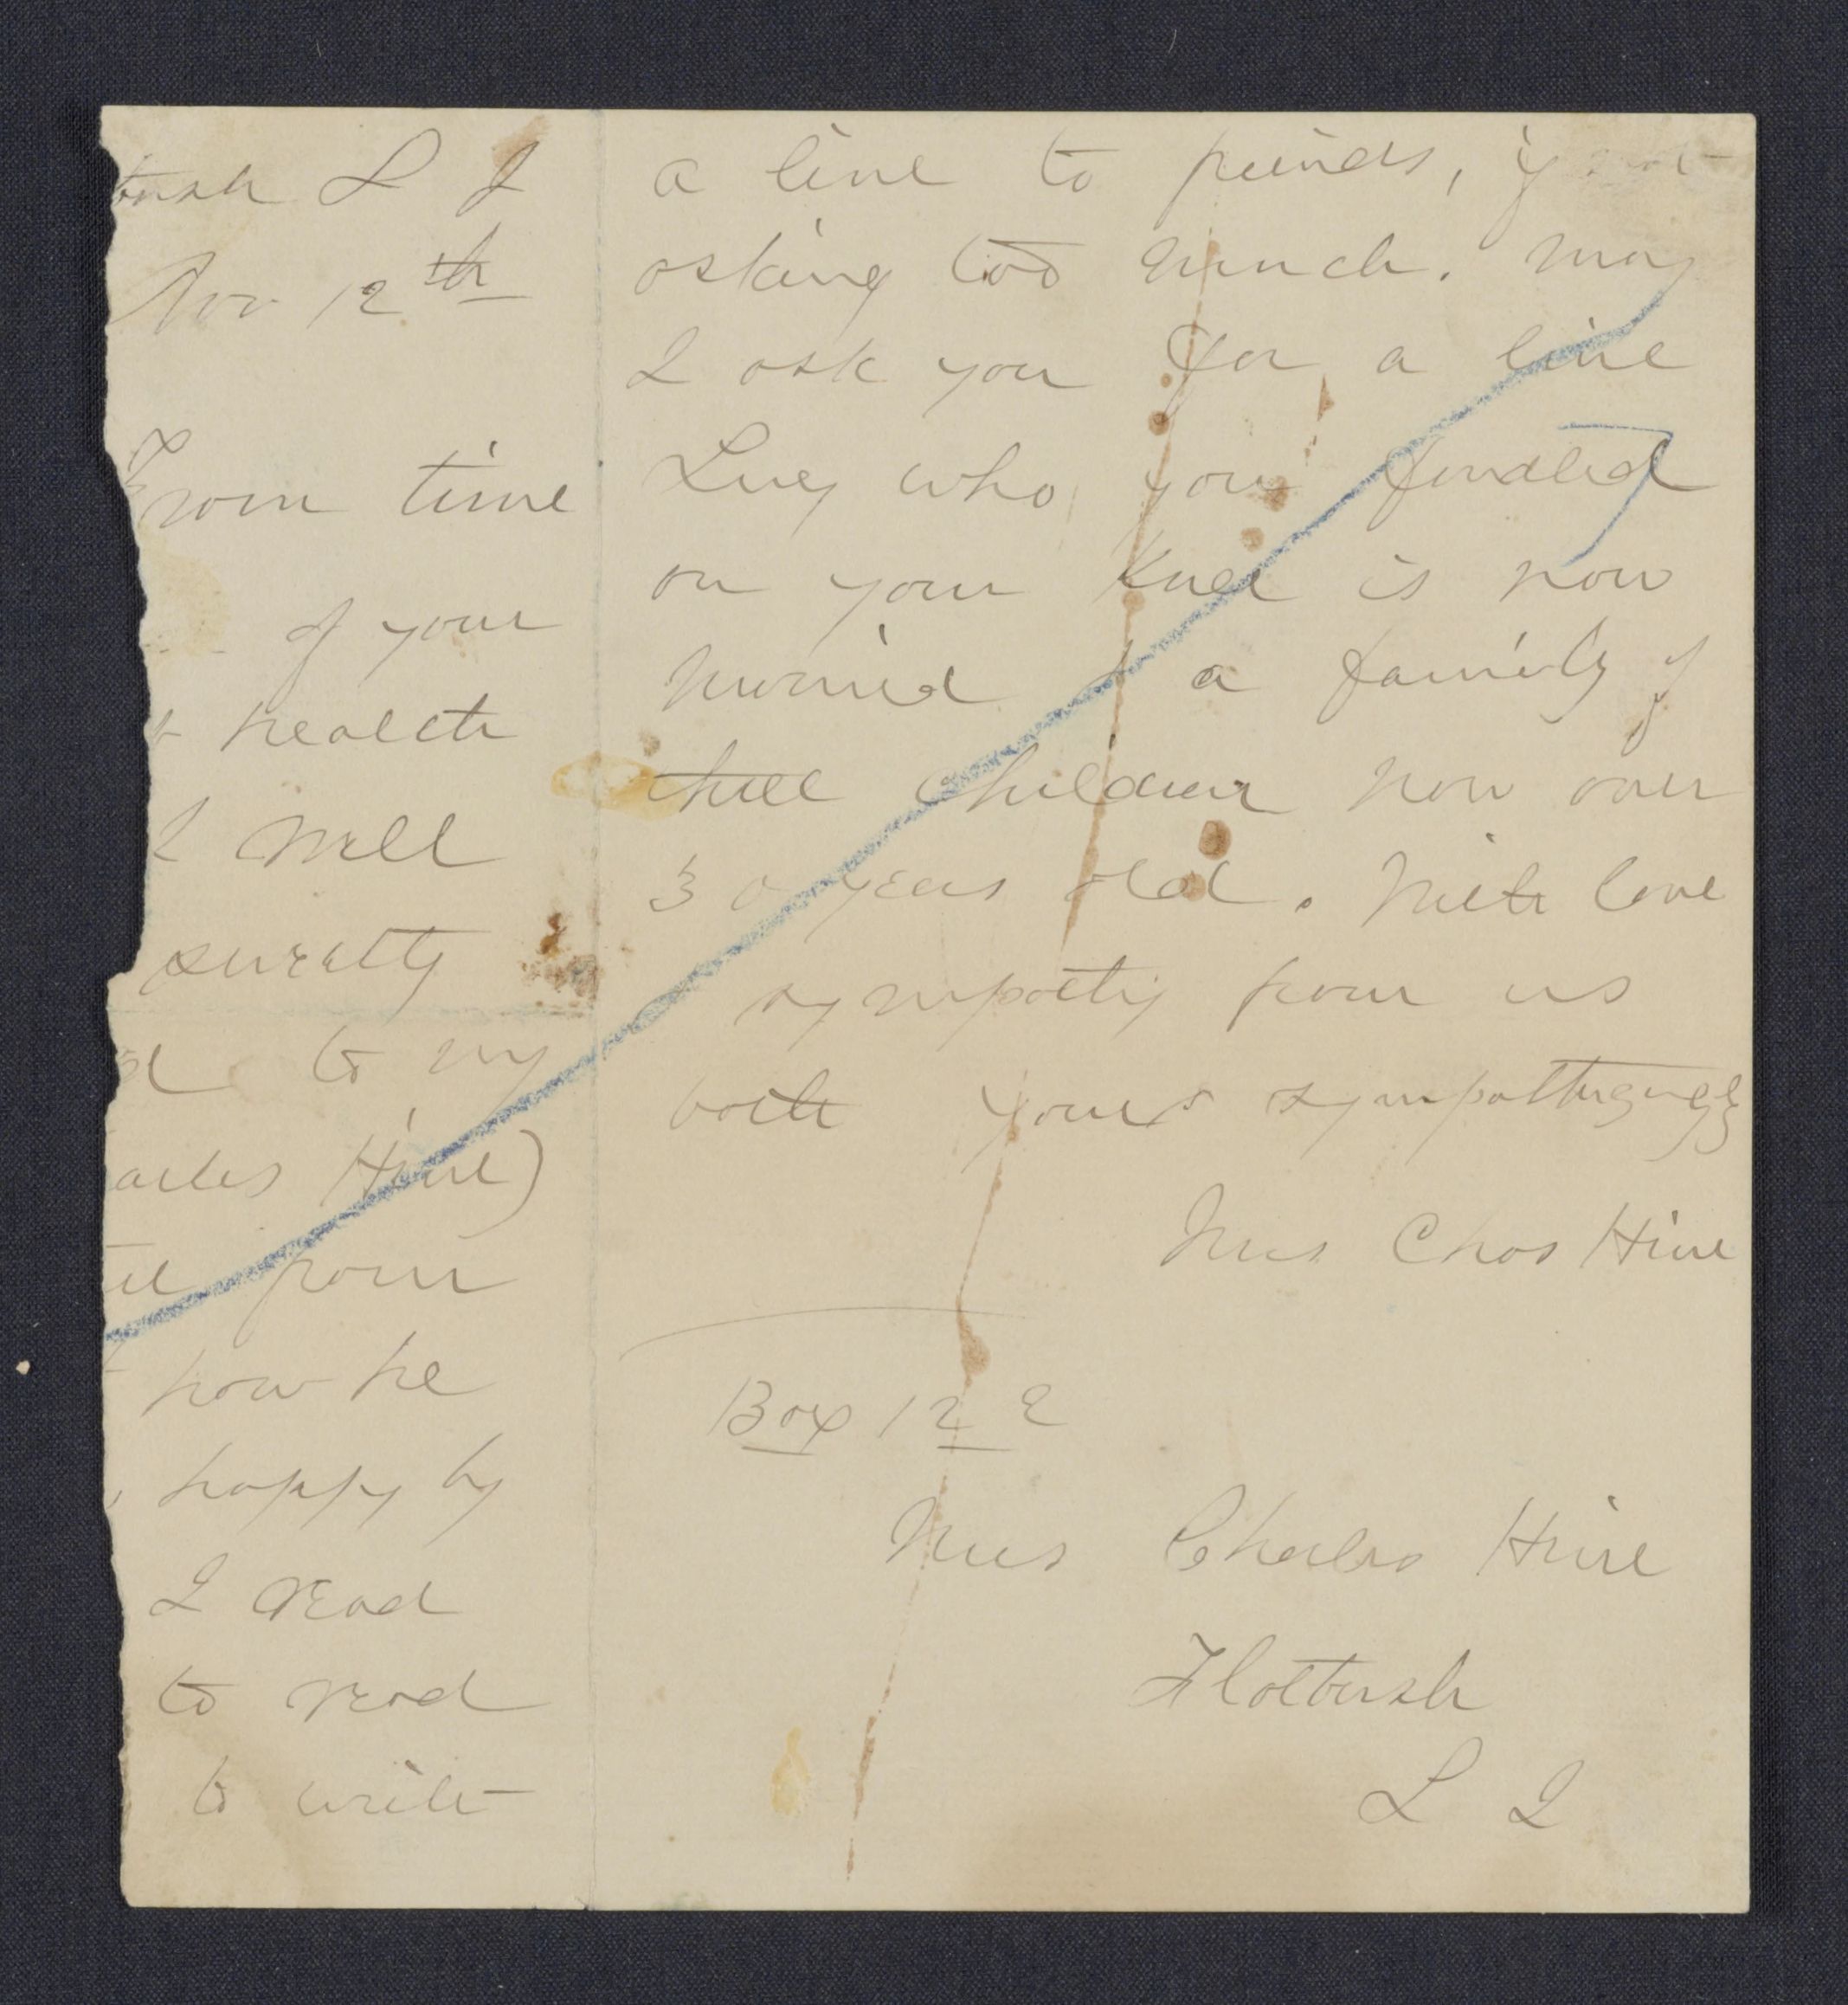 tbush L I
Nov 12th
From time
of your
health
I will
surely
d to my
arles Hine)
from
how he
happy by
I read
to read
to write
a line to friends, if not
asking too much. May
I ask you for a line
Lucy who you fondled
on your knee is now
married & a family of
three children now over
30 years old. With love
sympathy from us
both yours sympathizingly
Mrs Chas Hine
Box 122
Mrs Charles Hine
Flatbush
L I